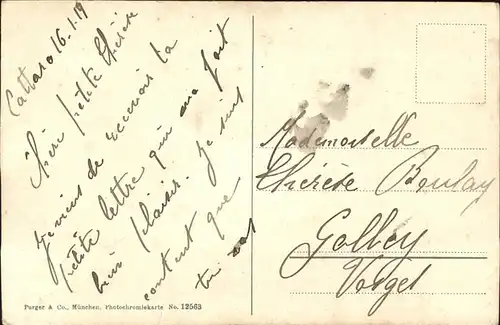 Cattaro 16.1.19
Chère petite Thérèse
Je viens de recevoir ta
petite lettre qui ma fait
bien plaisir. Je suis
content que
tu vas
Mademoiselle
Thérèse Boulay
Golbey
Vosges
Purger & Co., München, Photochromiekarte No. 12563